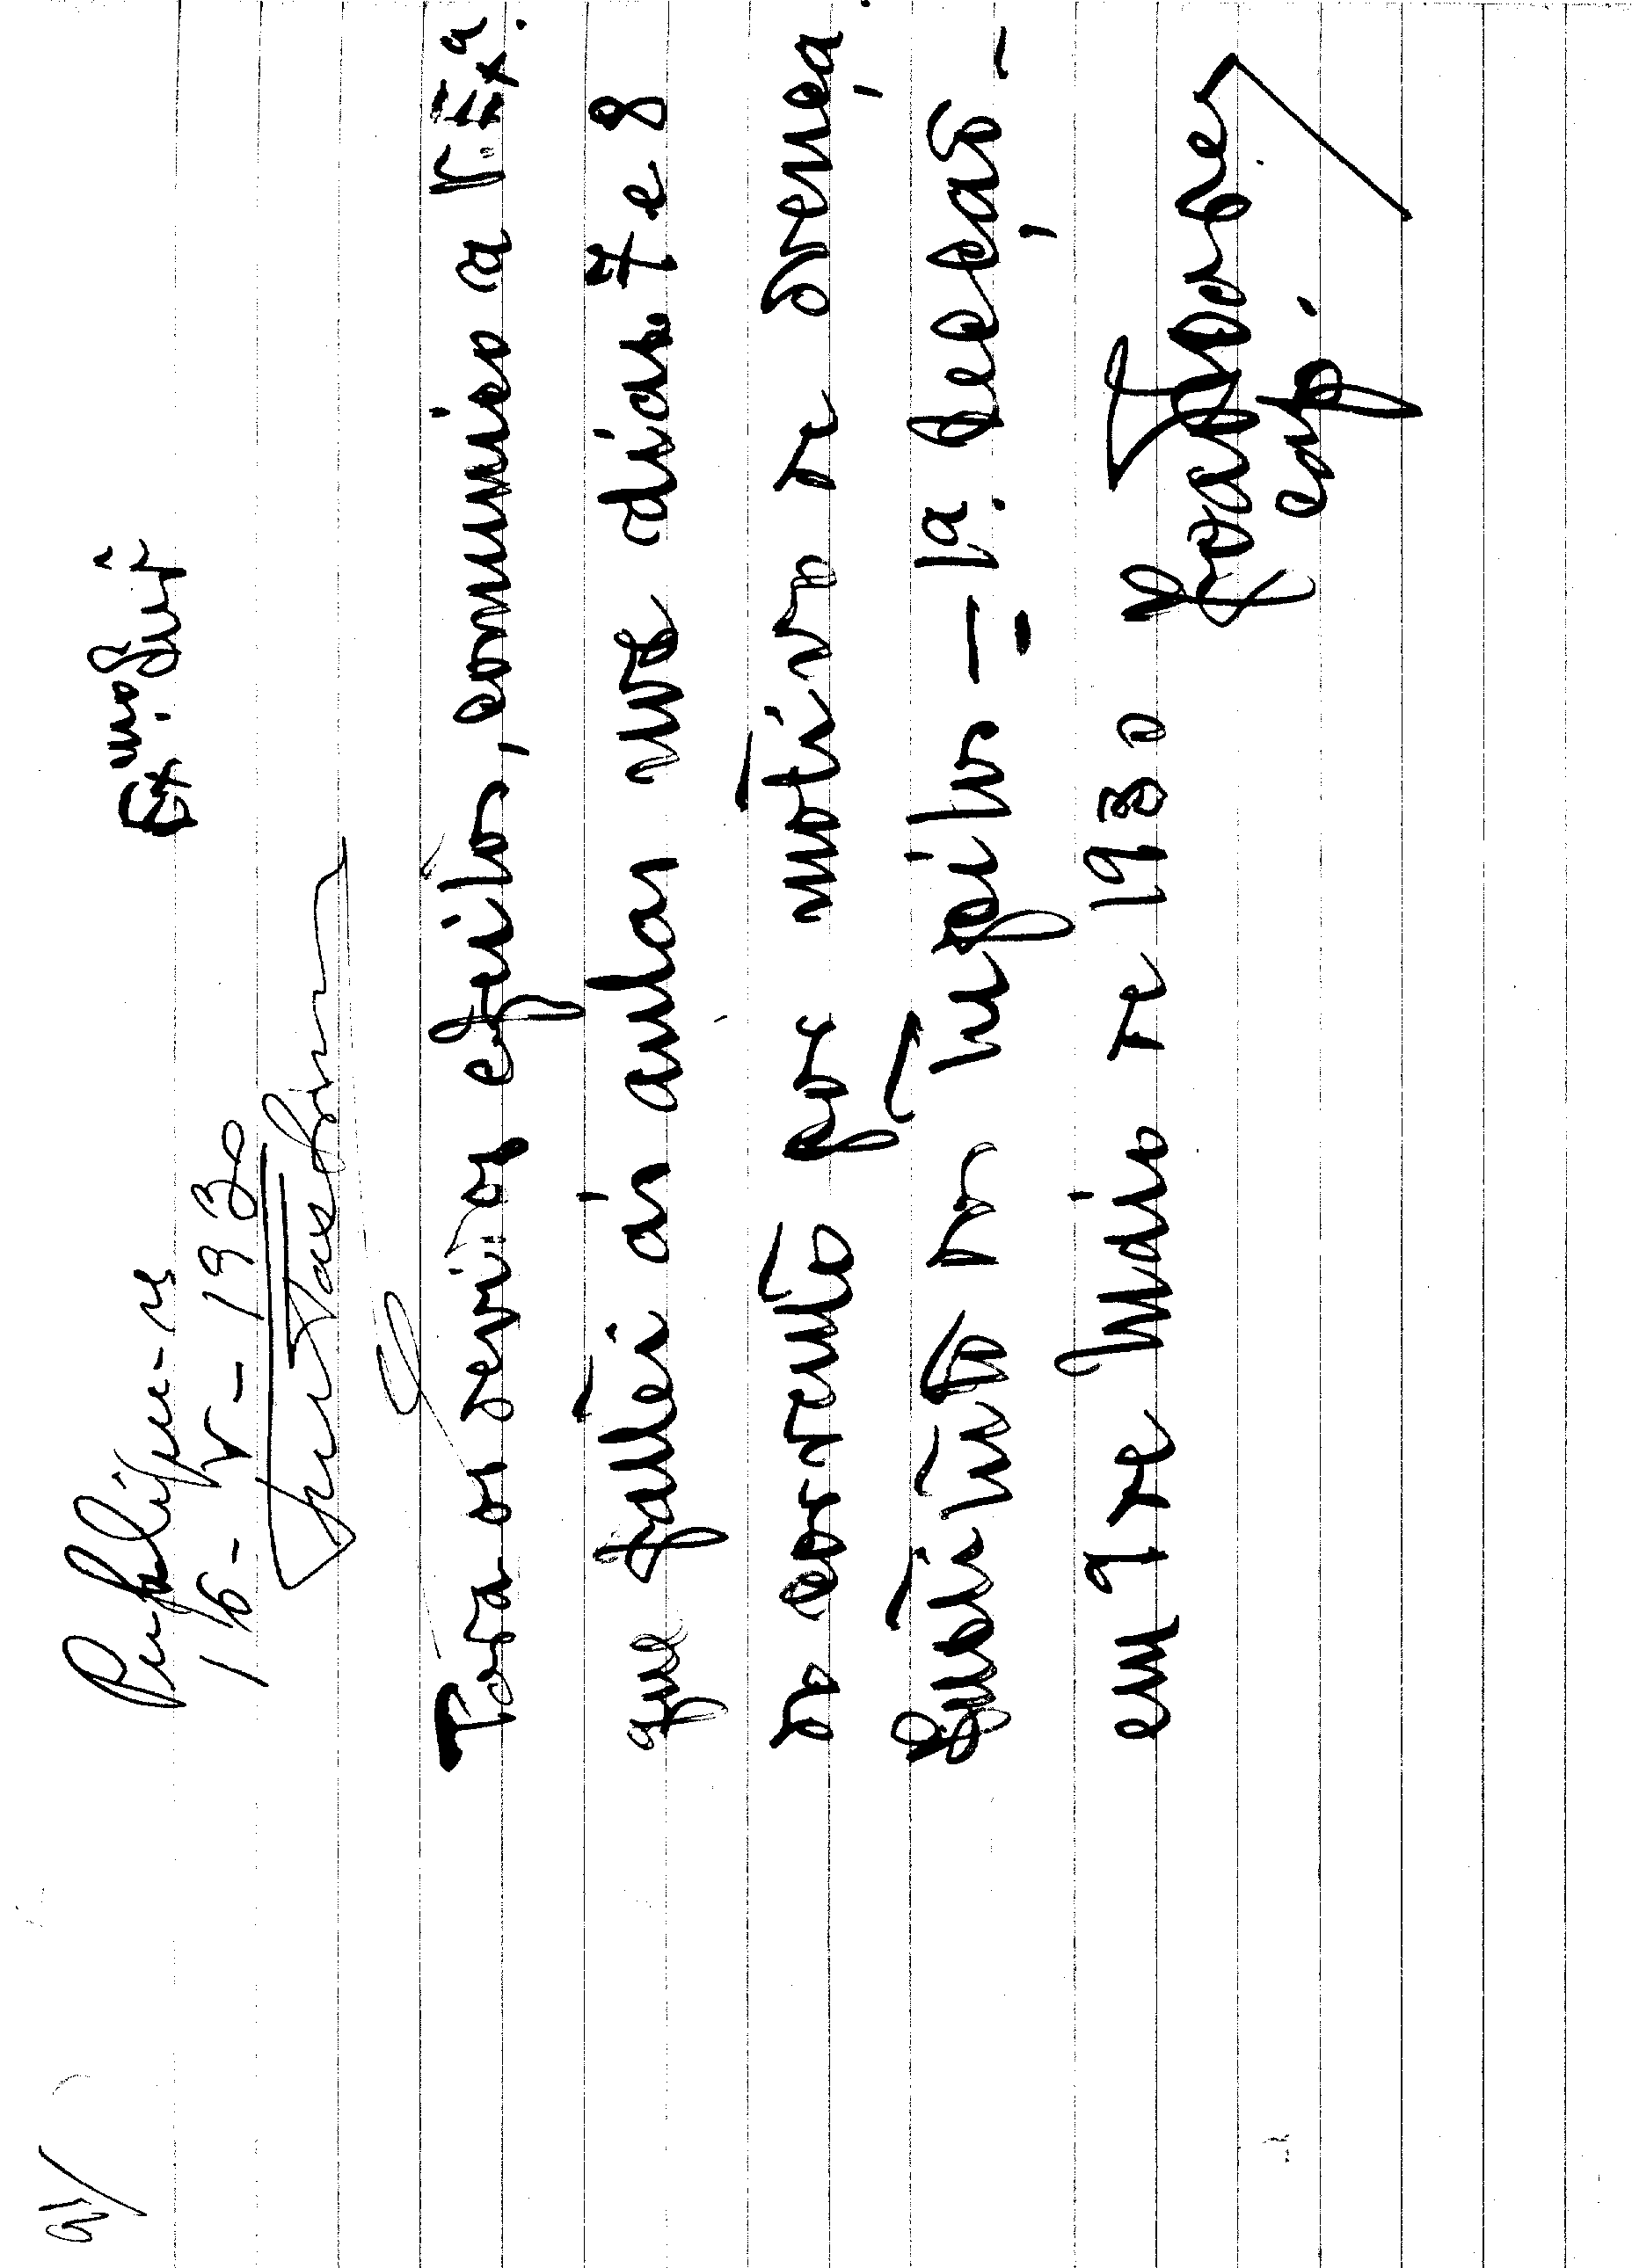 91/
Ex.mo Snr
Publique-se
16-V-1930
Para os devidos efeitos, comunico a V. Exª.
que faltei ás aulas nos dias 7 e 8
do corrente por motivo de doença
Instituto de Pupilos — 1ª. Secção -
em 9 de Maio de 1930
cap.